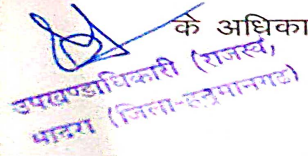 के अधिका
उपखण्डाधिकारी (राजस्व)
भादरा (जिला-हनुमानगढ)